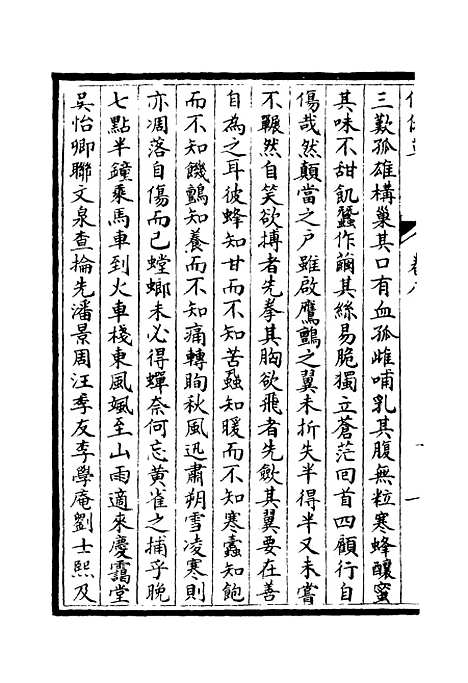 三歎孤雄構巢其口有血孤雌哺乳其腹無粒寒蜂釀蜜
其味不甜飢蠶作繭其絲易脆獨立蒼茫回首四顧行自
傷哉然顛當之戶雖啟鷹鸇之翼未折失半得半又未嘗
不囅然自笑欲搏者先拳其胸欲飛者先歛其翼要在善
自為之耳彼蜂知甘而不知苦蝨知暖而不知寒蠹知飽
而不知饑鸇知養而不知痛轉眴秋風迅肅朔雪凌寒則
亦凋落自傷而已螳螂未必得蟬奈何忘黃雀之捕乎晚
七點半鐘乘馬車到火車棧東風颯至山雨適來慶靄堂
吳怡卿聯文泉查掄先潘景周汪季友李學庵劉士熙及